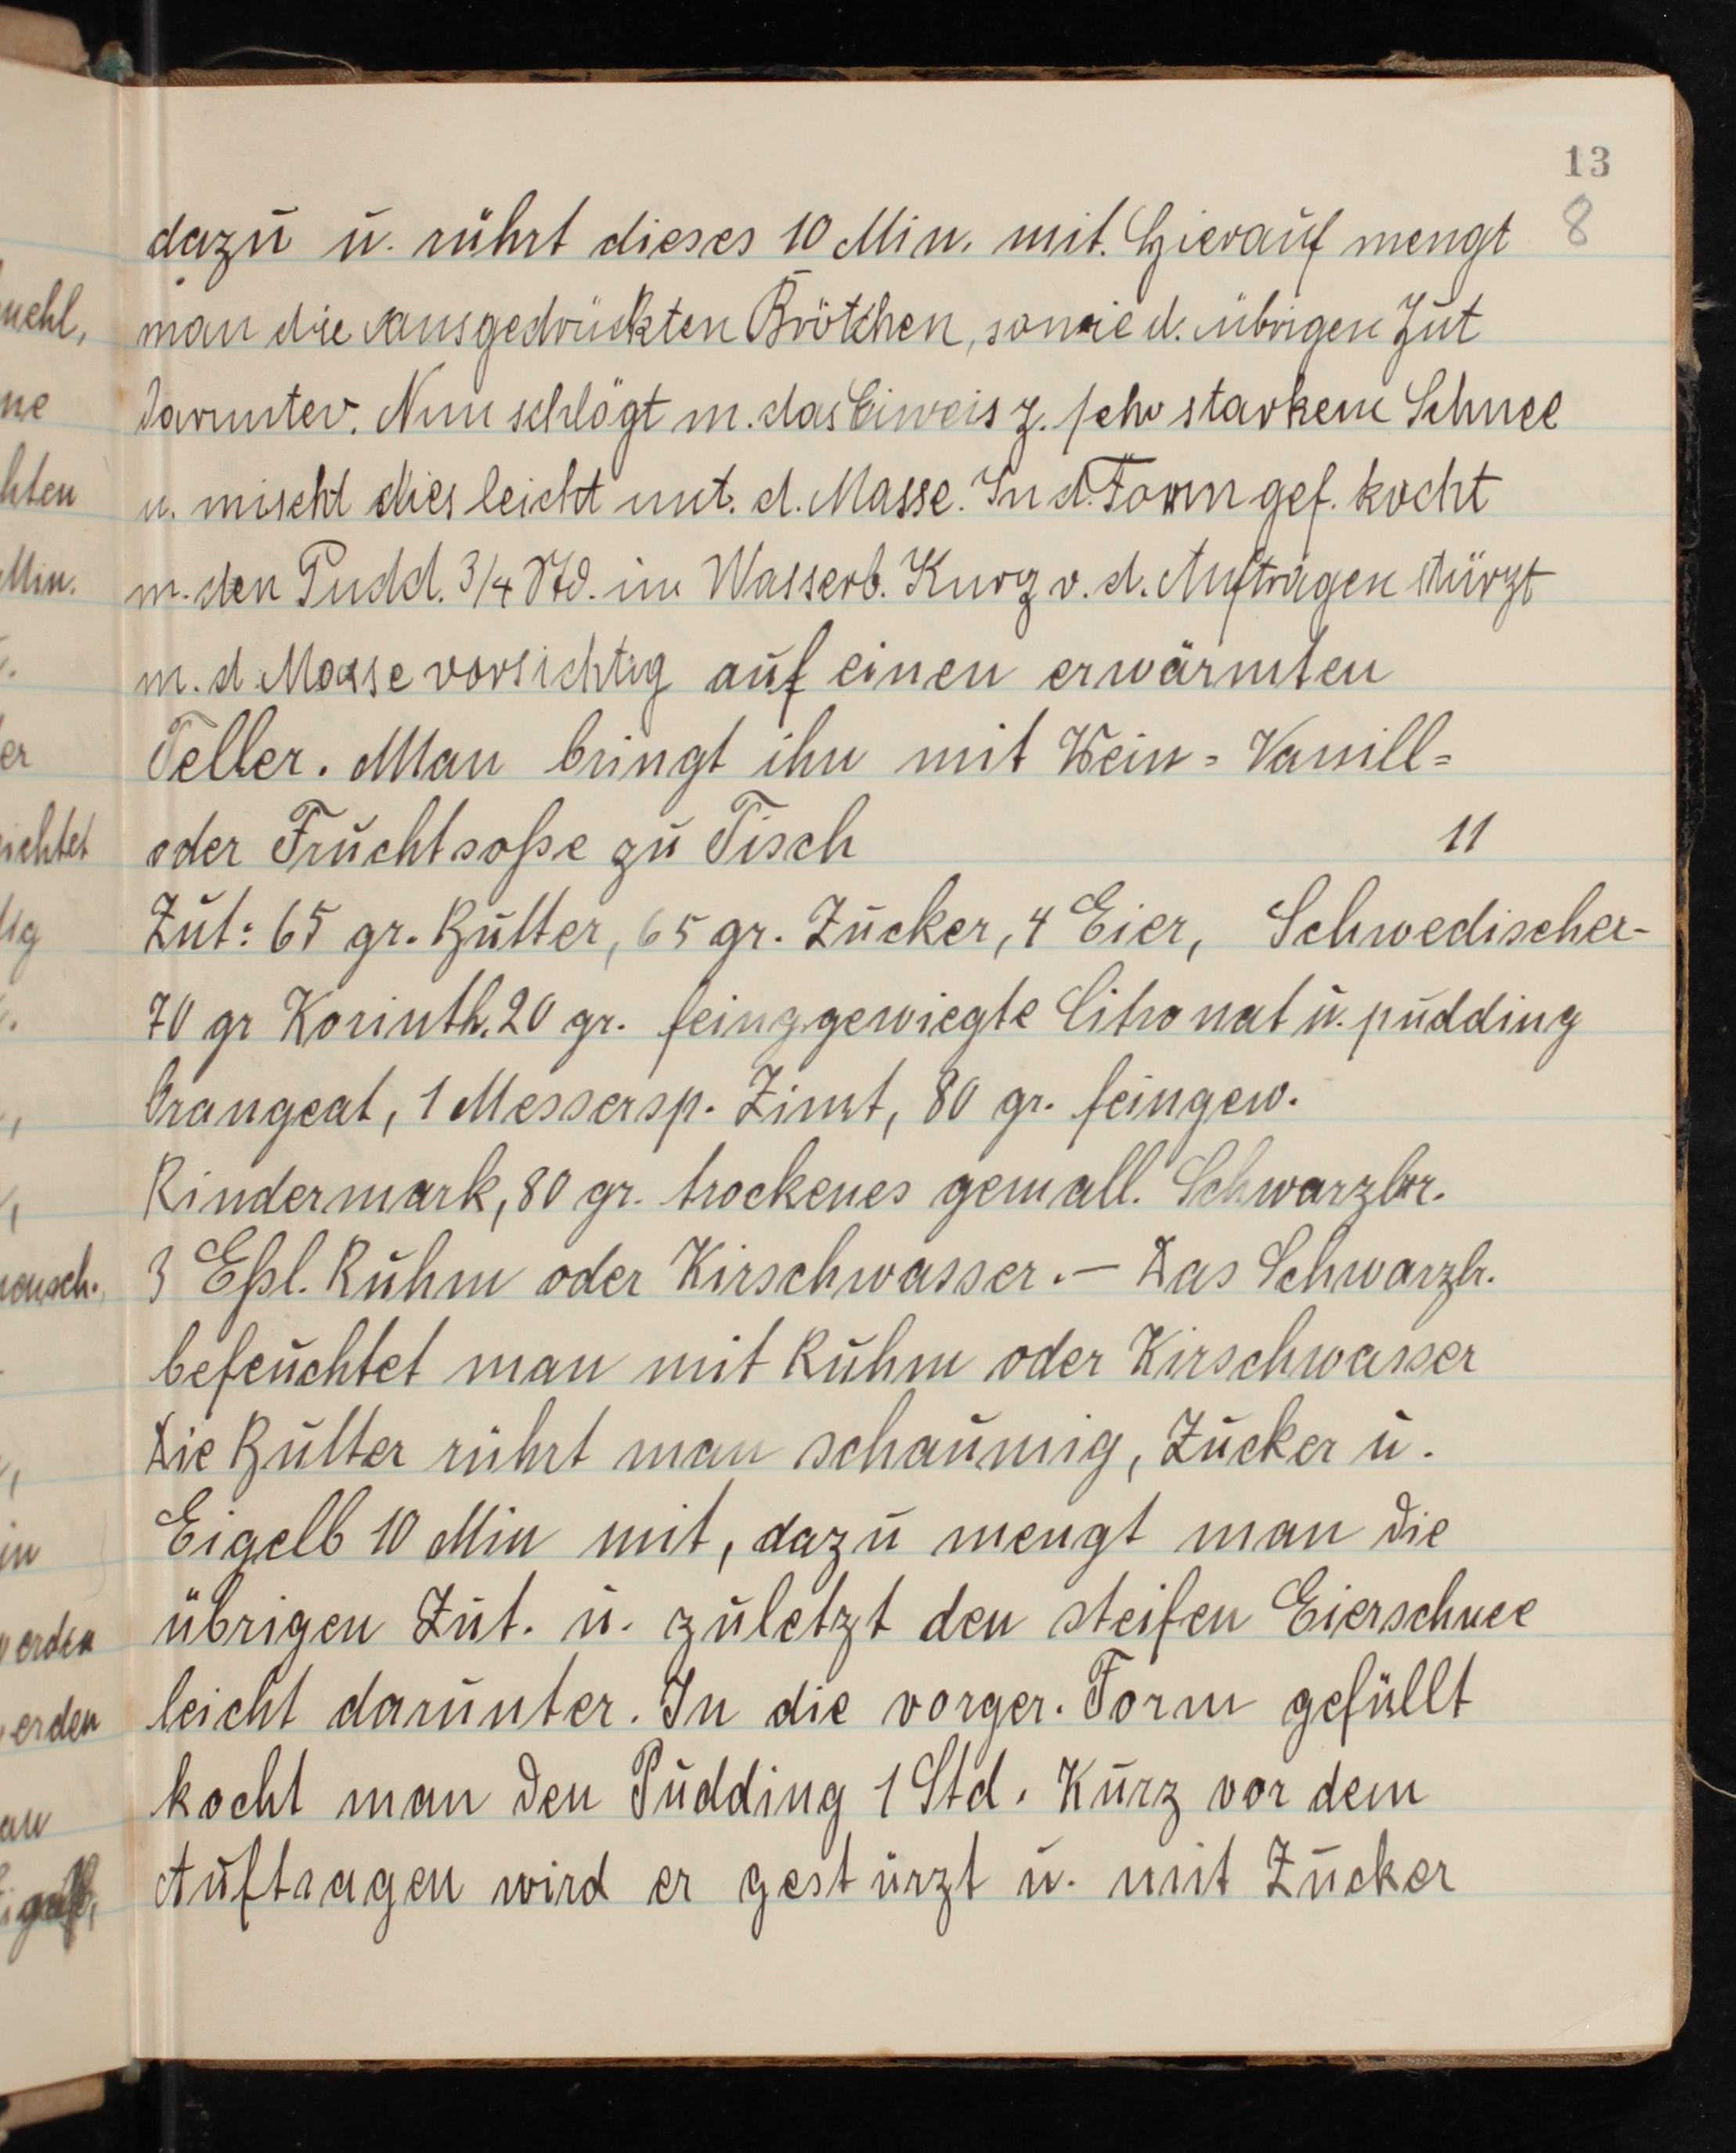 13
8
dazu u. rührt dieses 10 Min. mit. Hierauf mengt
man die ausgedrückten Brötchen, sowie d. übrigen Zut
darunter. Nun schlägt m. das Eiweis z. sehr starkem Schnee
u. mischt dies leicht mit. d. Masse. In d. Form gef. kocht
m. den Pudd. 3/4 Std. im Wasserb. Kurz v. d. Auftragen stürzt
m. d. Masse vorsichtig auf einen erwärmten
Teller. Man bringt ihn mit Wein= Vanill=
oder Fruchtsoße zu Tisch 11
Zut: 65 gr. Butter, 65 gr. Zucker, 4 Eier, Schwedischer-
70 gr Korinth. 20 gr. feinggewiegte Citronat u. pudding
Orangeat, 1 Messersp. Zimt, 80 gr. feingew.
Rindermark, 80 gr. trockenes gemall. Schwarzbr.
3 Eßl. Ruhm oder Kirschwasser. - Das Schwarzbr.
befeuchtet man mit Ruhm oder Kirschwasser
Die Butter rührt man schaumig, Zucker u.
Eigelb 10 Min mit, dazu mengt man die
übrigen Zut. u. zuletzt den steifen Eierschnee
leicht darunter. In die vorger. Form gefüllt
kocht man den Pudding 1 Std. Kurz vor dem
Auftragen wird er gestürzt u. mit Zucker